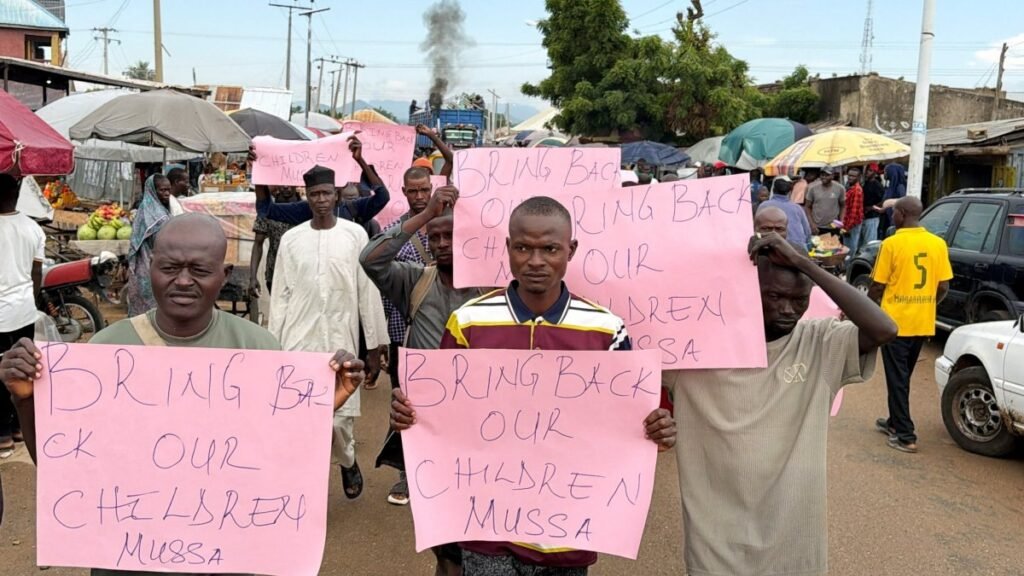 BRING BA-
CK OUR
CHILDREN
MUSSA
BRING BACK
OUR
CHILDREN
MUSSA
BRING BACK
OUR
CHILDREN
BRING BACK
OUR
CHILDREN
MUSSA
CHILDREN
SR
5